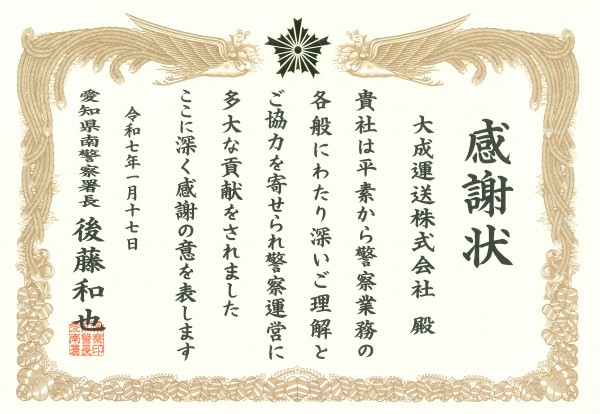 感謝状
大成運送株式会社 殿
貴社は平素から警察業務の
各般にわたり深いご理解と
ご協力を寄せられ警察運営に
多大な貢献をされました
ここに深く感謝の意を表します
令和七年一月十七日
愛知県南警察署長 後藤和也